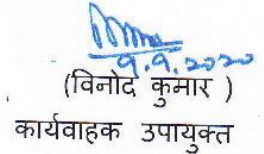 9.9.2020
(विनोद कुमार )
कार्यवाहक उपायुक्त